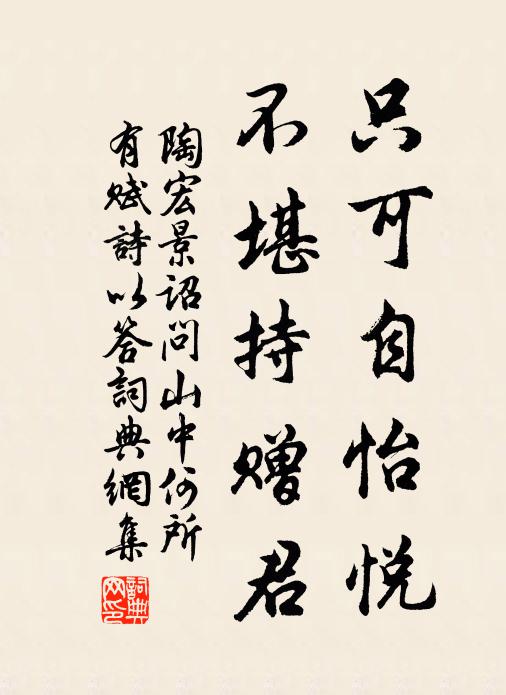 只可自怡悦
不堪持赠君
陶宏景诏问山中何所
有赋詩以答詞典網集
詞典